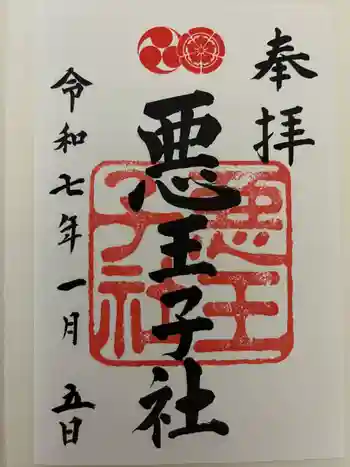 奉拝
悪王子社
令和七年一月五日
悪王
子社